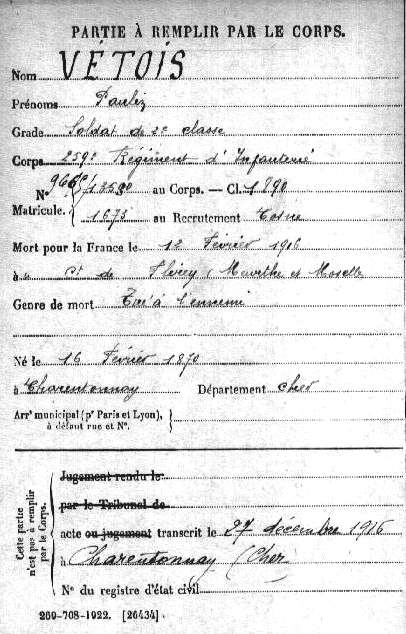 PARTIE À REMPLIR PAR LE CORPS.
Nom VÉTOIS
Prénoms
Grade Soldat de 2e classe
Corps 259e Régiment d'Infanterie
N° au Corps. — Cl. 1890
Matricule. 1673 au Recrutement Cosne
Mort pour la France le 12 Février 1916
à Ct de Flirey (Meurthe et Moselle
Genre de mort Tué à l'ennemi
Né le 16 Février 1870
à Charentonnay Département Cher
Arrt municipal (pr Paris et Lyon),
à défaut rue et N°.
Cette partie
n'est pas à remplir
par le Corps.
Jugement rendu le
par le Tribunal de
acte ou jugement transcrit le 27 décembre 1916
à Charentonnay (Cher
N° du registre d'état civil
269-708-1922. [26434]